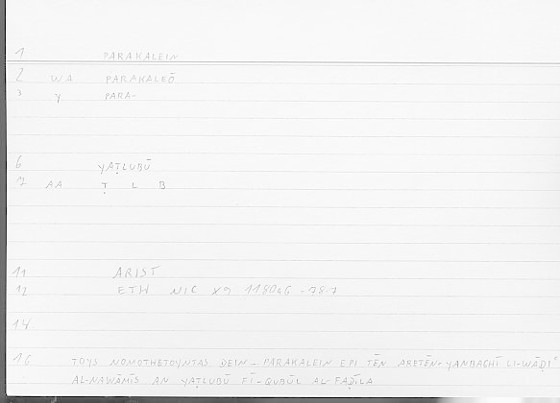 1 PARAKALEIN
2 WA PARAKALEŌ
3 Y PARA-
6 YAṬLUBŪ
7 AA Ṭ L B
11 ARIST
12 ETH NIC X9
14
16 TOYS NOMOTHETOYNTAS DEIN - PARAKALEIN EPI TĒN ARETĒN - YANBAGHĪ LI-WĀḌI'
AL-NAWĀMĪS AN YAṬLUBŪ FĪ - QUBŪL AL-FAḌĪLA